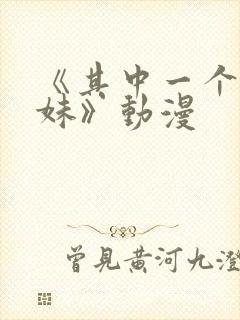 《其中一个
妹》動漫
曾見黃河九澄